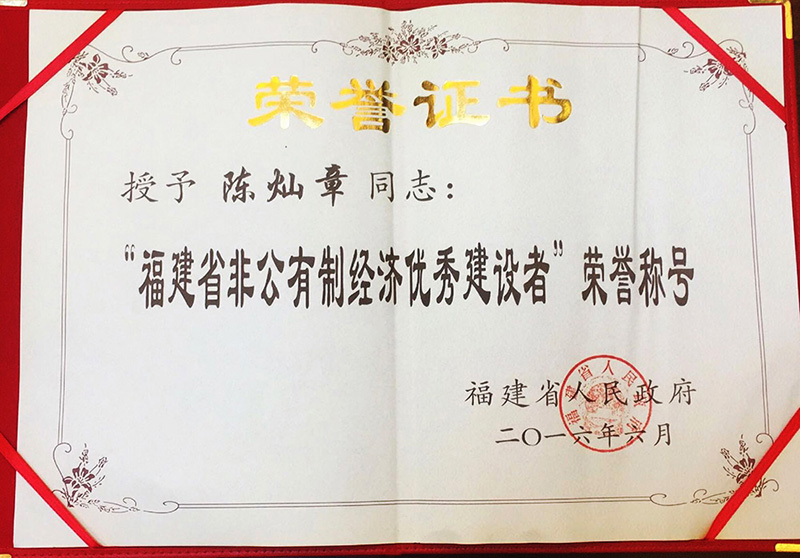 荣誉证书
授予 陈灿章 同志：
“福建省非公有制经济优秀建设者”荣誉称号
福建省人民政府
福建省人民政府
二〇一六年六月